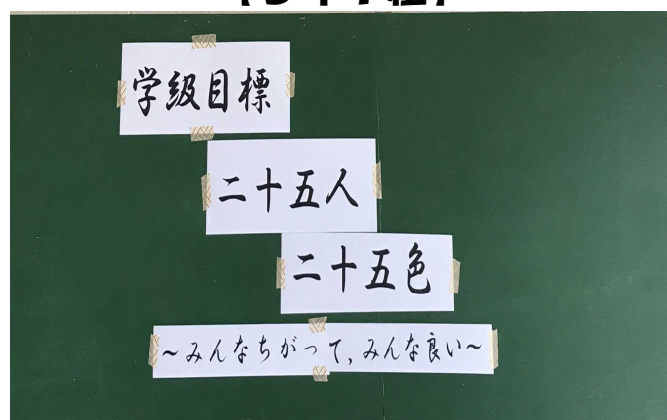 学級目標
二十五人
二十五色
～みんなちがって,みんな良い～